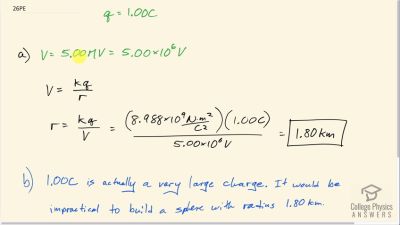 26PE
q = 1.00C
a) V = 5.00MV = 5.00×10⁶ V
V = kq/r
r = kq/V = (8.988×10⁹ N·m²/C²)(1.00C)/5.00×10⁶V = 1.80 km
b) 1.00C is actually a very large charge. It would be
impractical to build a sphere with radius 1.80 km.
College Physics
ANSWERS